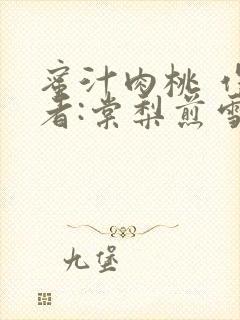 蜜汁肉桃
者:棠梨煎雪
九堡